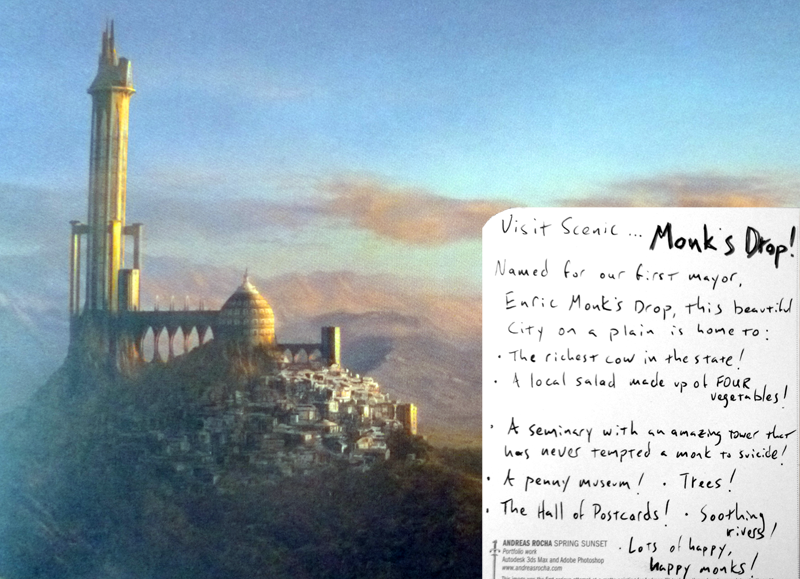 Visit Scenic ... Monk's Drop!
Named for our first mayor,
Enric Monk's Drop, this beautiful
City on a plain is home to:
• The richest cow in the state!
• A local salad made up of FOUR
vegetables!
• A seminary with an amazing tower that
has never tempted a monk to suicide!
• A penny museum! • Trees!
• The Hall of Postcards! • Soothing
rivers!
• Lots of happy,
happy monks!
1 ANDREAS ROCHA SPRING SUNSET
Portfolio work
Autodesk 3ds Max and Adobe Photoshop
www.andreasrocha.com